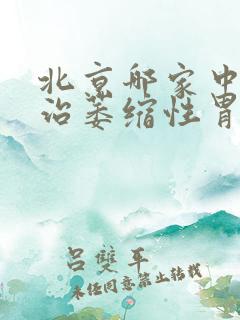 北京那家中
治萎缩性胃
吕雙平
未任同意禁止转载